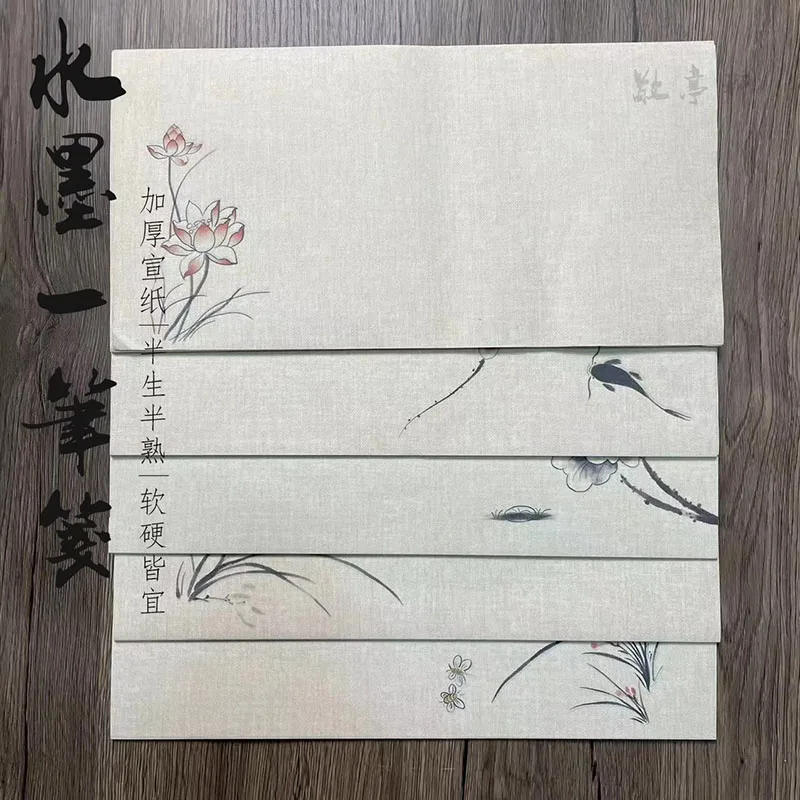 水墨一筆箋
加厚宣纸|半生半熟|软硬皆宜
敬亭